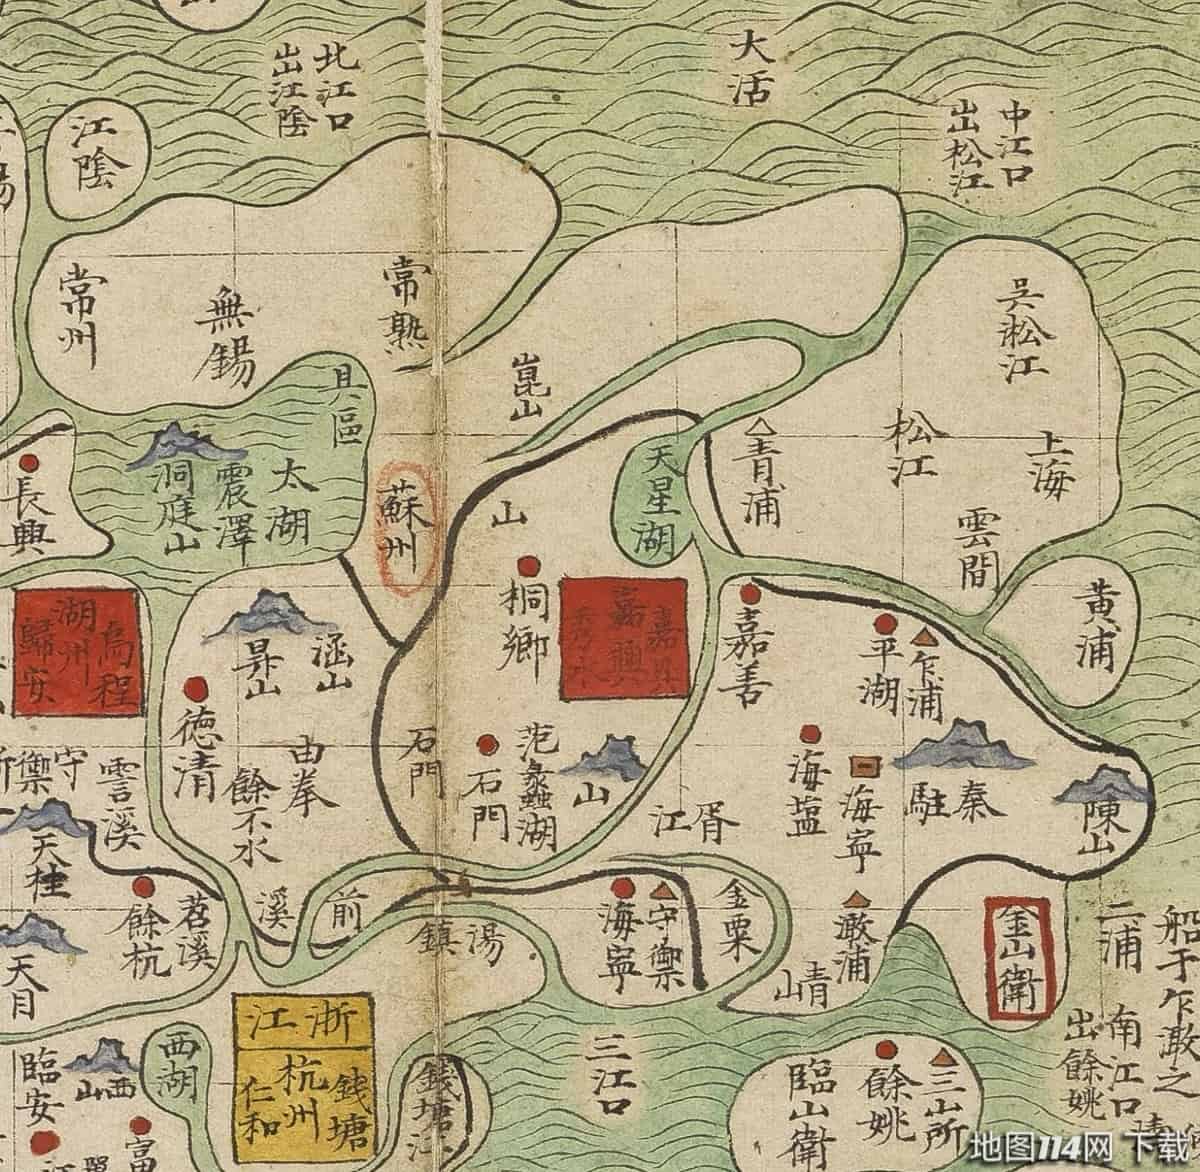 北江口
出江陰
大活
中江口
出松江
江陰
常州
無錫
常熟
崑山
吳淞江
松江
上海
雲間
青浦
具區
太湖
震澤
洞庭山
長興
蘇州
山
天星湖
桐鄉
嘉興
嘉善
平湖
乍浦
黃浦
湖州
烏程
歸安
昇山
涵山
德清
由拳
餘不水
石門
石門
范蠡湖
山
胥江
海鹽
海寧
秦駐
陳山
守禦
雲溪
天柱
餘杭
苕溪
前溪
天目
湯鎮
海寧
守禦
金粟
澉浦
金山衛
二浦
船于乍澉之
南江口
出餘姚
浙江
杭州
錢塘
仁和
西湖
臨安
西山
錢塘江
三江口
臨山衛
餘姚
三山所
地图114网 下载